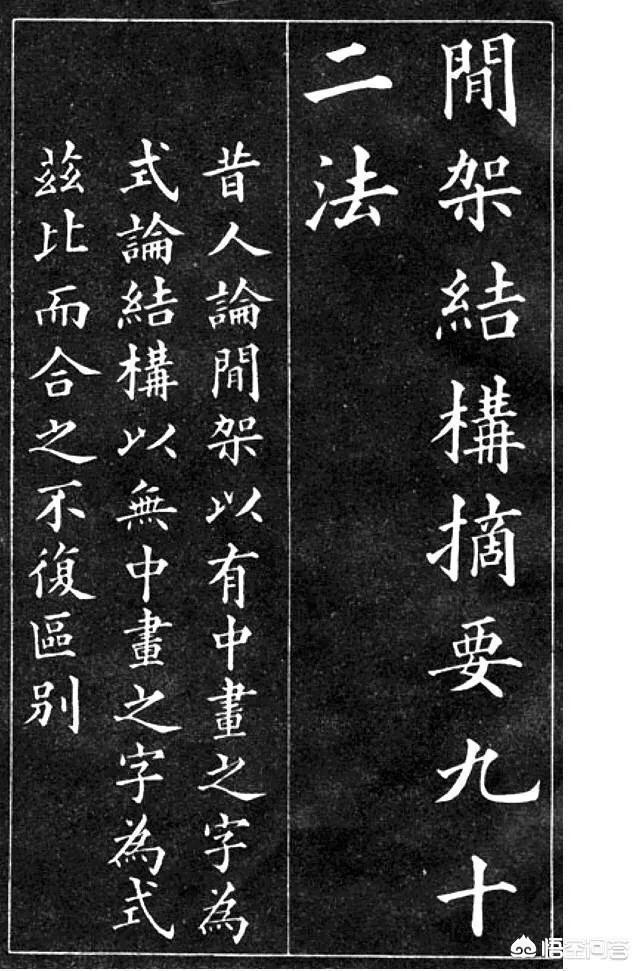 閒架結構摘要九十
二法
昔人論閒架以有中畫之字為
式論結構以無中畫之字為式
茲比而合之不復區别
悟空问答